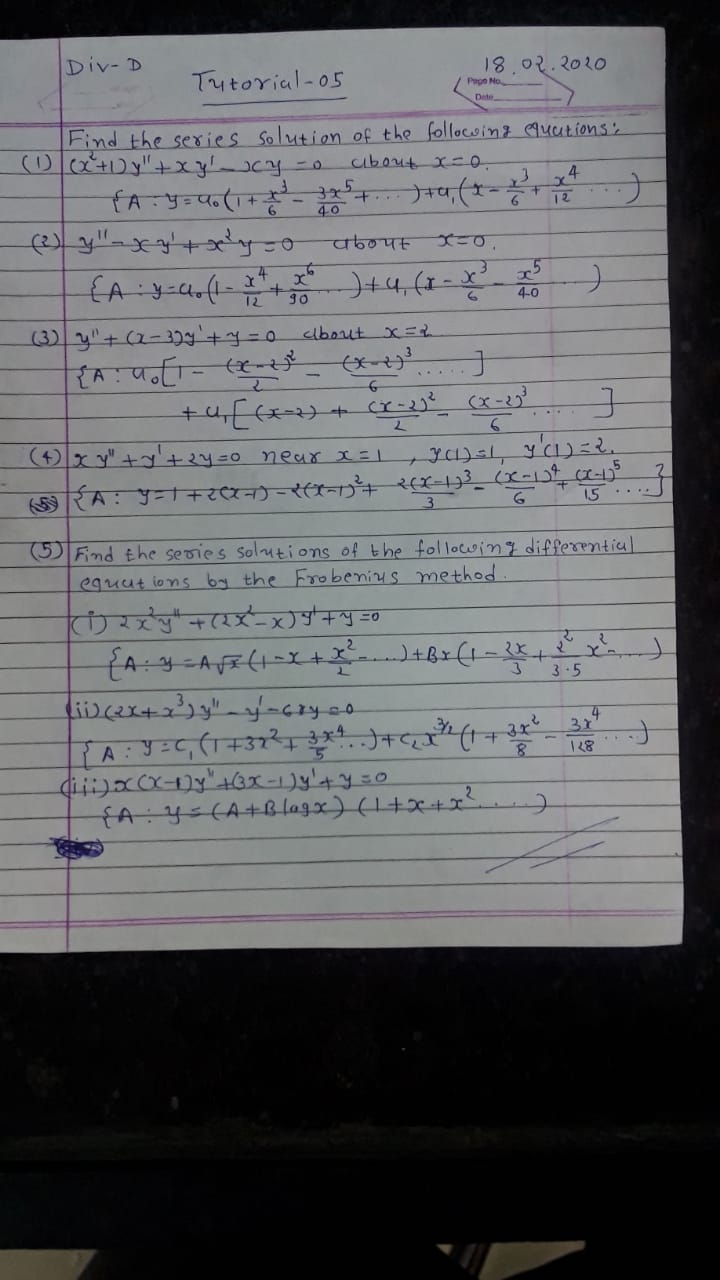 Div-D
18.02.2020
Tutorial-05
Page No.
Date
Find the series solution of the following equations:
(1) (x²+1)y'' + xy' - xy = 0 about x=0.
{A : y = a₀(1 + x³/6 - 3x⁵/40 + ...) + a₁(x - x³/6 + x⁴/12 ...)
(2) y'' - xy' + x²y = 0 about x=0.
{A : y = a₀(1 - x⁴/12 + x⁶/90 ...) + a₁(x - x³/6 - x⁵/40 ...)
(3) y'' + (x-3)y' + y = 0 about x=2
{A : a₀[1 - (x-2)²/2 - (x-2)³/6 .....]
+ a₁[(x-2) + (x-2)²/2 - (x-2)³/6 ....]
(4) xy'' + y' + 2y = 0 near x=1, y(1)=1, y'(1)=2.
{A : y = 1 + 2(x-1) - 2(x-1)² + 2(x-1)³/3 - (x-1)⁴/6 + (x-1)⁵/15 ....}
(5) Find the series solutions of the following differential
equations by the Frobenius method.
(i) 2x²y'' + (2x²-x)y' + y = 0
{A : y = A√x(1 - x + x²/2 - ...) + Bx(1 - 2x/3 + 2²/3·5 x² - ...)
(ii) (2x+x³)y'' - y' - 6xy = 0
{A : y = C₁(1 + 3x² + 3x⁴/5 ...) + C₂x^3/2(1 + 3x²/8 - 3x⁴/128 ...)
(iii) x(x-1)y'' + (3x-1)y' + y = 0
{A : y = (A+B logx) (1+x+x² ....)